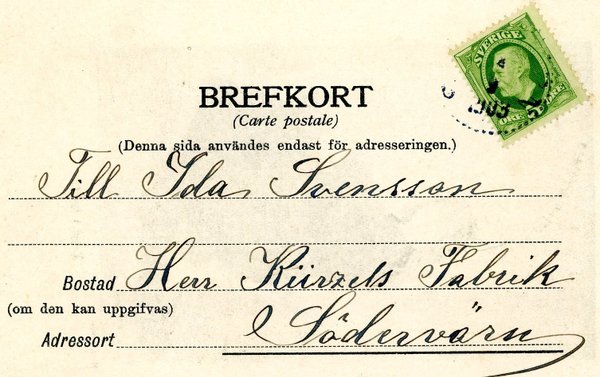 SVERIGE
1903
5 ÖRE
BREFKORT
(Carte postale)
(Denna sida användes endast för adresseringen.)
Till Ida Svensson
Bostad Herr Kürzels Fabrik
(om den kan uppgifvas)
Adressort Södervärn